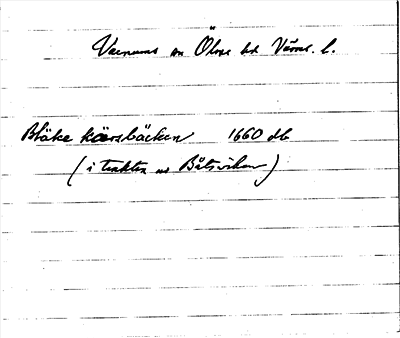 Varnums sn Ölme hd Värml. l.
Bläke kärrsbäcken 1660 db
(i trakten av Båtsviken)